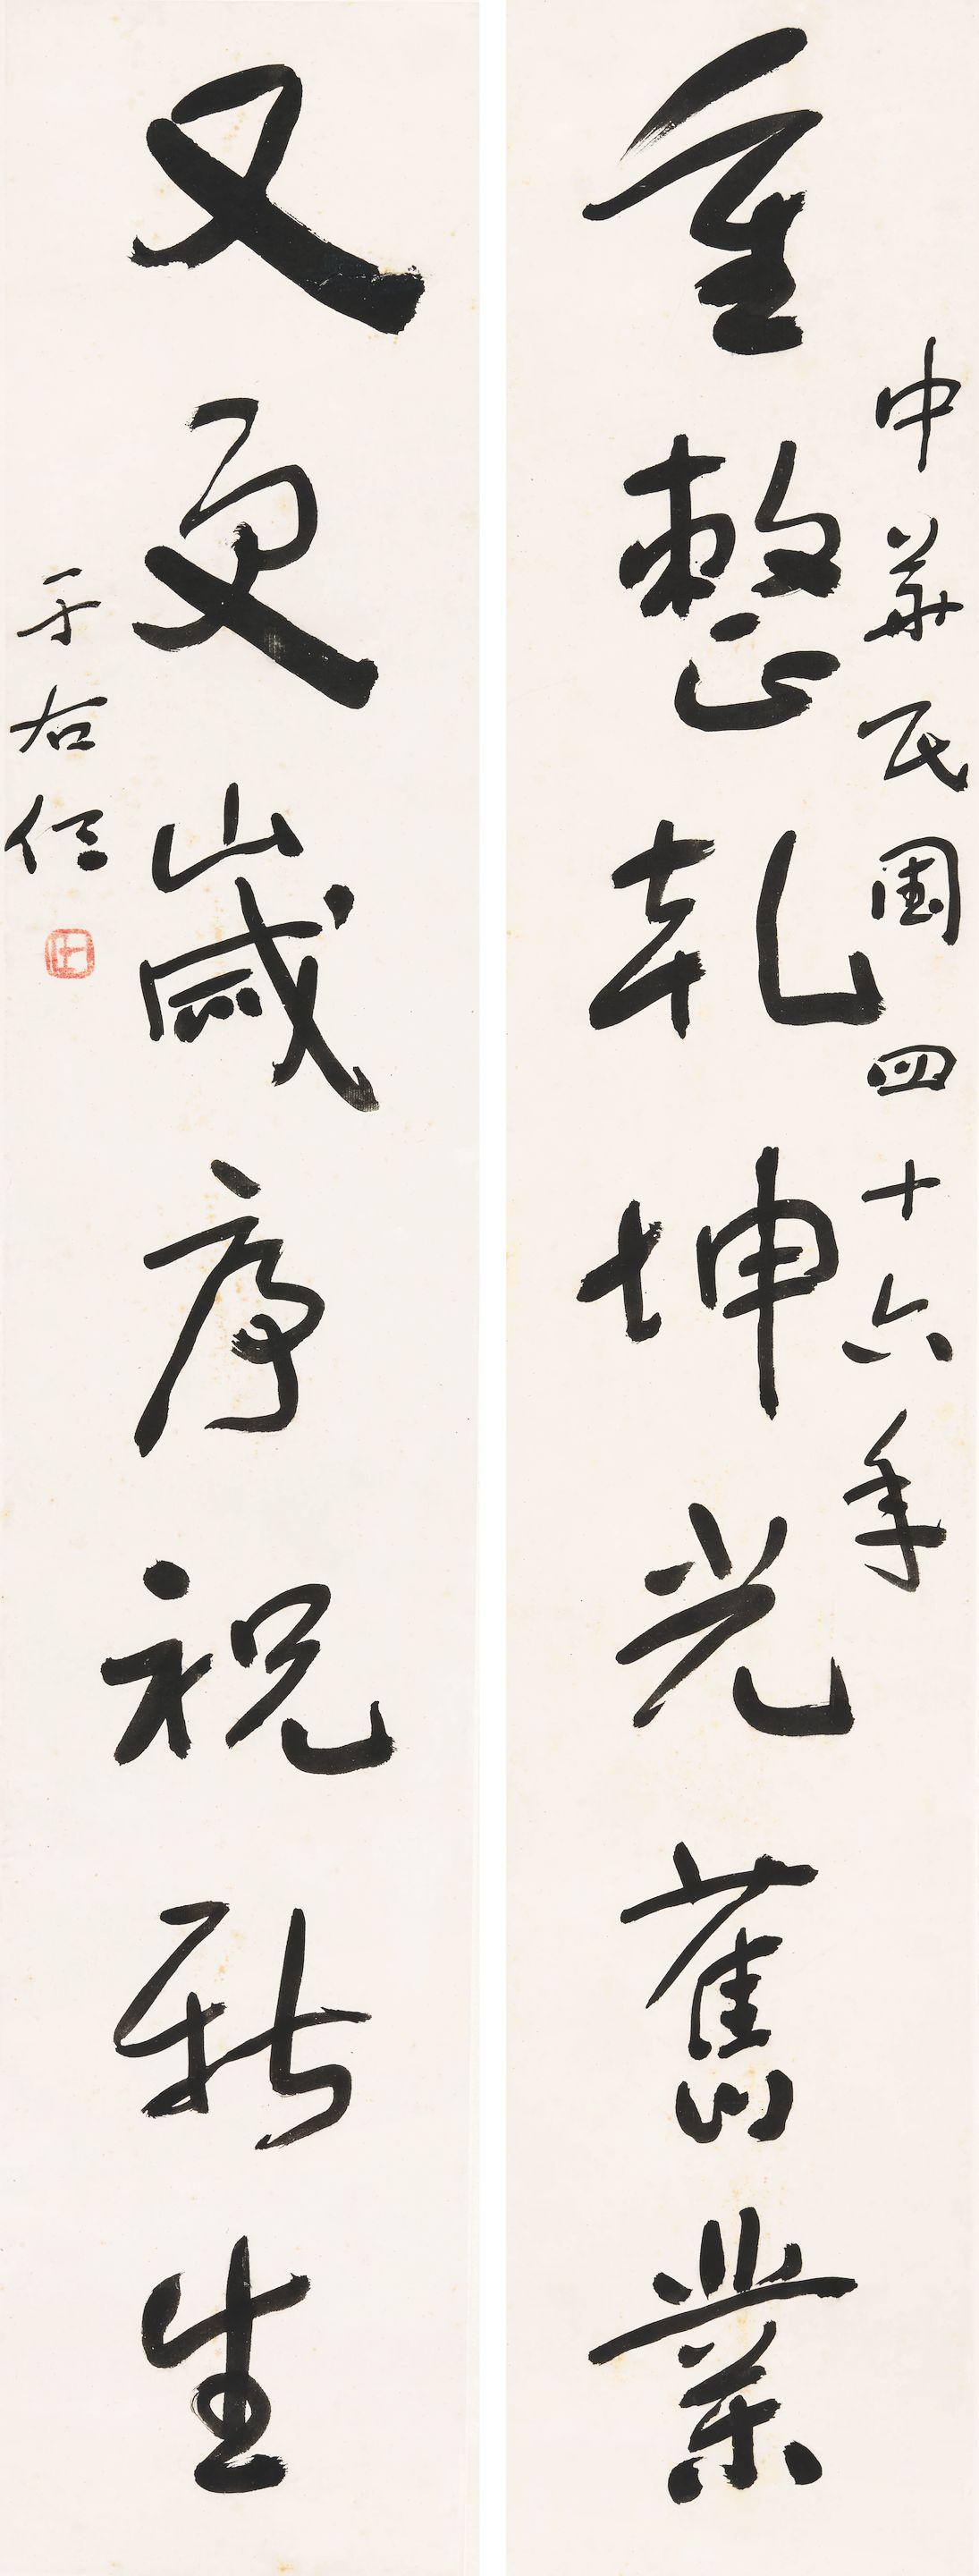 中華民國四十六年
重整乾坤光舊業
又更歲序祝新生
于右任